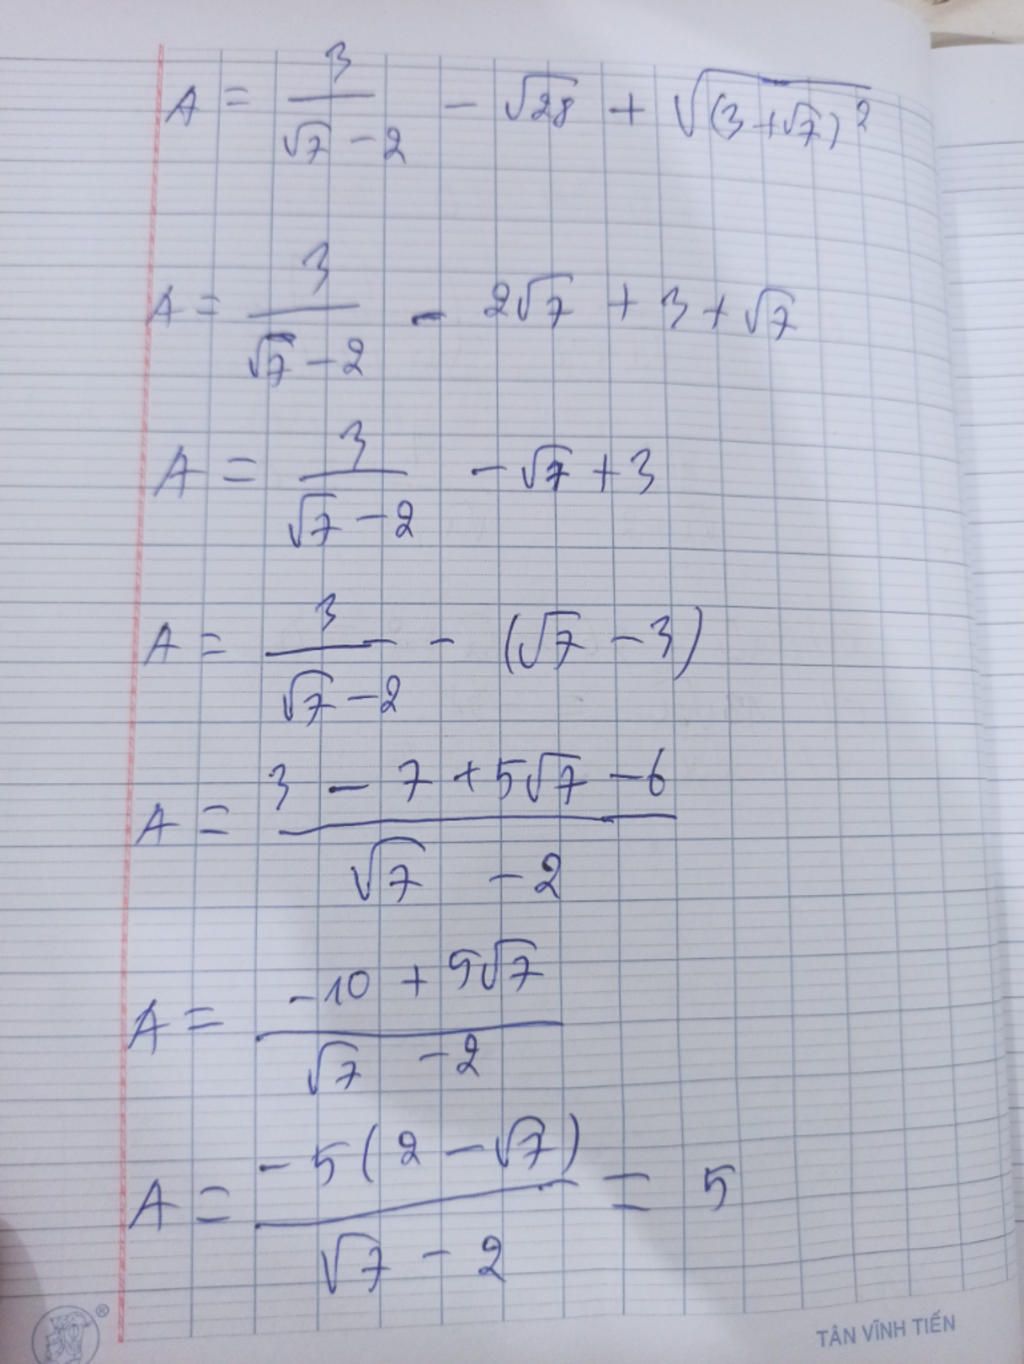 A = 3/(√7 - 2) - √28 + √((3 + √7)²)
A = 3/(√7 - 2) - 2√7 + 3 + √7
A = 3/(√7 - 2) - √7 + 3
A = 3/(√7 - 2) - (√7 - 3)
A = (3 - 7 + 5√7 - 6)/(√7 - 2)
A = (-10 + 5√7)/(√7 - 2)
A = -5(2 - √7)/(√7 - 2) = 5
®
TÂN VĨNH TIẾN